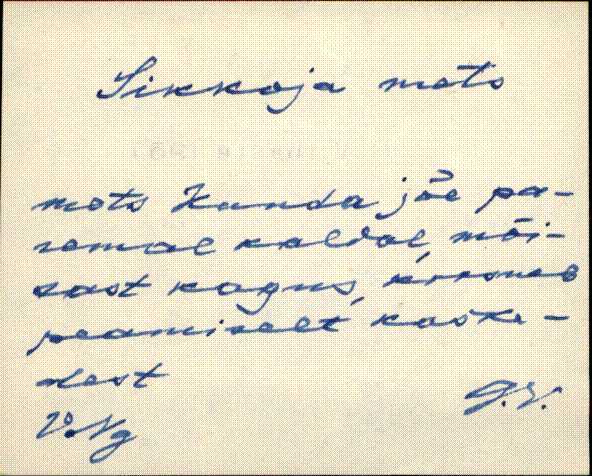 Sikkoja mets
mets Kunda jõe pa-
remal kaldal, mõi-
sast kagus, koosneb
peamiselt kaske-
dest
V. Ng